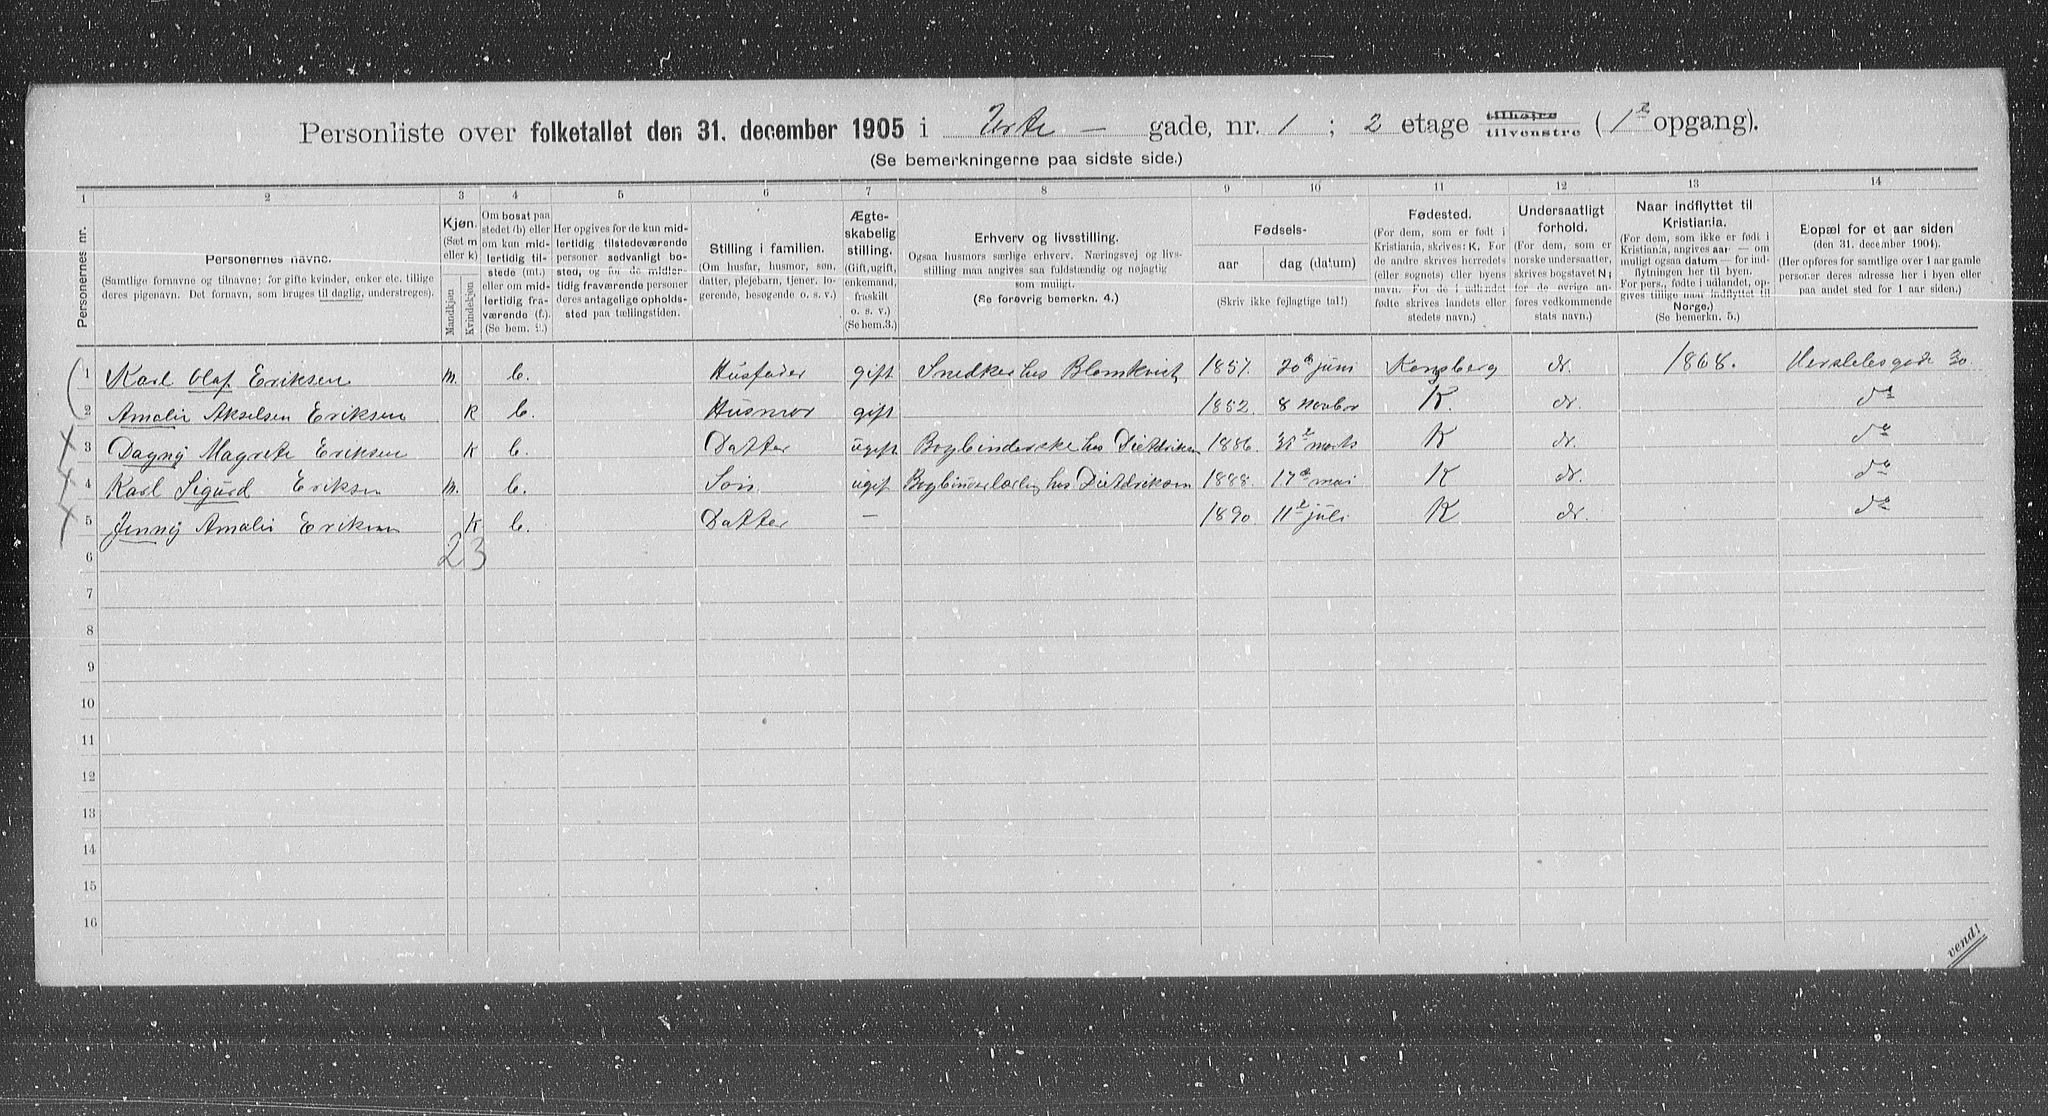 Personliste over folketallet den 31. december 1905 i Urte - gade, nr. 1 ; 2 etage tilhøjre tilvenstre ( 1ste opgang).
(Se bemerkningerne paa sidste side.)
1 2 3 4 5 6 7 8 9 10 11 12 13 14
Personernes nr.
Personernes navne.
(Samtlige fornavne og tilnavne; for gifte kvinder, enker etc. tillige deres pigenavn. Det fornavn, som bruges til daglig, understreges).
Kjøn.
(Sæt m eller k)
Mandkjøn
Kvindekjøn
Om bosat paa stedet (b) eller om kun midlertidig tilstede (mt.) eller om midlertidig fraværende (f.) (Se bem. 2.)
Her opgives for de kun midlertidig tilstedeværende personer sedvanligt bosted, og for de midlertidig fraværende personer deres antagelige opholdssted paa tællingstiden.
Stilling i familien.
(Om husfar, husmor, søn, datter, plejebarn, tjener, logerende, besøgende o. s. v.)
Ægteskabelig stilling.
(Gift, ugift, enkemand, fraskilt o. s. v.) (Se bem.3.)
Erhverv og livsstilling.
Ogsaa husmors særlige erhverv. Næringsvej og livsstilling maa angives saa fuldstændig og nøjagtig som muligt.
(Se forøvrig bemerkn. 4.)
Fødsels-
aar
dag (datum)
(Skriv ikke fejlagtige tal!)
Fødested.
(For dem, som er født i Kristiania, skrives: K. For de andre skrives herredets (eller sognets) eller byens navn. For de i udlandet fødte skrives landets eller stedets navn.)
Undersaatligt forhold.
(For dem, som er norske undersaatter, skrives bogstavet N; for de øvrige anføres vedkommende stats navn.)
Naar indflyttet til Kristiania.
(For dem, som ikke er født i Kristiania, angives aar — om muligt ogsaa datum — for indflytningen her til byen. For pers., fødte i udlandet, opgives tillige naar indflyttet til Norge.)
(Se bemerkn. 5.)
Bopæl for et aar siden
(den 31. december 1904).
(Her opføres for samtlige over 1 aar gamle personer deres adresse her i byen eller paa andet sted for 1 aar siden.)
1 Karl Olaf Eriksen m. b. Husfader gift Snedker hos Blomkvist 1857. 20de juni Kongsberg n. 1868. Herslebsgade 30.
2 Amalie Akselsen Eriksen K b. Husmor gift 1852 8 novbr K. n. do
3 Dagny Magrete Eriksen K b. Datter ugift Bogbinderske hos Dietdriksen 1886. 31te marts K n. do
4 Karl Sigurd Eriksen m. b. Søn ugift Bogbinderlærling hos Dietdriksen 1888 17de mai K n. do
5 Jenny Amalie Eriksen K b. Datter — 1890. 11te juli K n. do
2 3
6
7
8
9
10
11
12
13
14
15
16
vend!